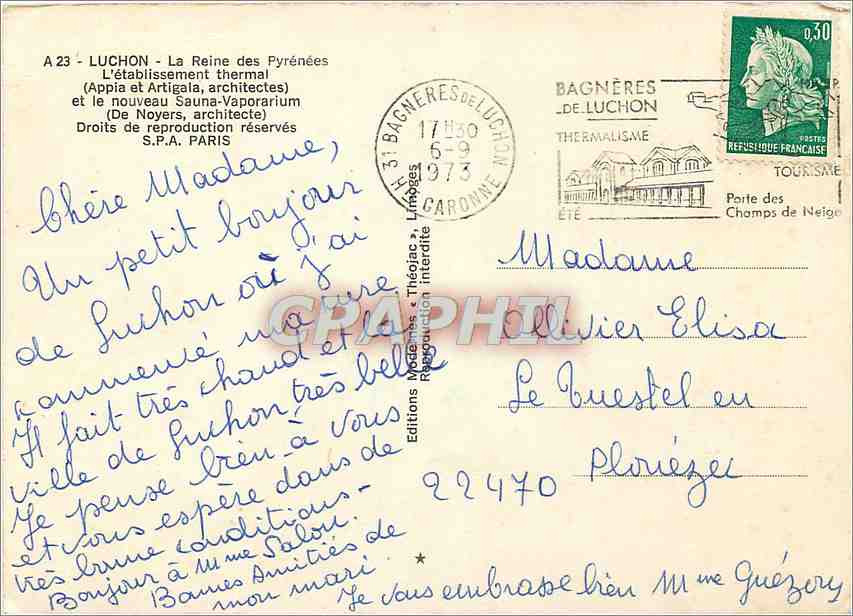 A 23 - LUCHON - La Reine des Pyrénées
L'établissement thermal
(Appia et Artigala, architectes)
et le nouveau Sauna-Vaporarium
(De Noyers, architecte)
Droits de reproduction réservés
S.P.A. PARIS
Chère Madame,
Un petit bonjour
de Luchon où j'ai
commencé ma cure.
Il fait très chaud et la
ville de Luchon, très belle
Je pense bien à vous
et vous espère dans de
très bonne conditions-
Bonjour à Mme Salou.
Bonnes Amitiés de
mon mari
Je vous embrasse bien Mme Guézou
Editions Modernes « Théojac », Limoges
Reproduction interdite
31 BAGNERES DE LUCHON
17H30
6-9
1973
HTE GARONNE
BAGNÈRES
-DE-LUCHON
THERMALISME
ÉTÉ
TOURISME
Porte des
Champs de Neige
0,30
POSTES
REPUBLIQUE FRANÇAISE
CPAPHIL
Madame
Ollivier Elisa
Le Tuestel en
Plouézec
22470